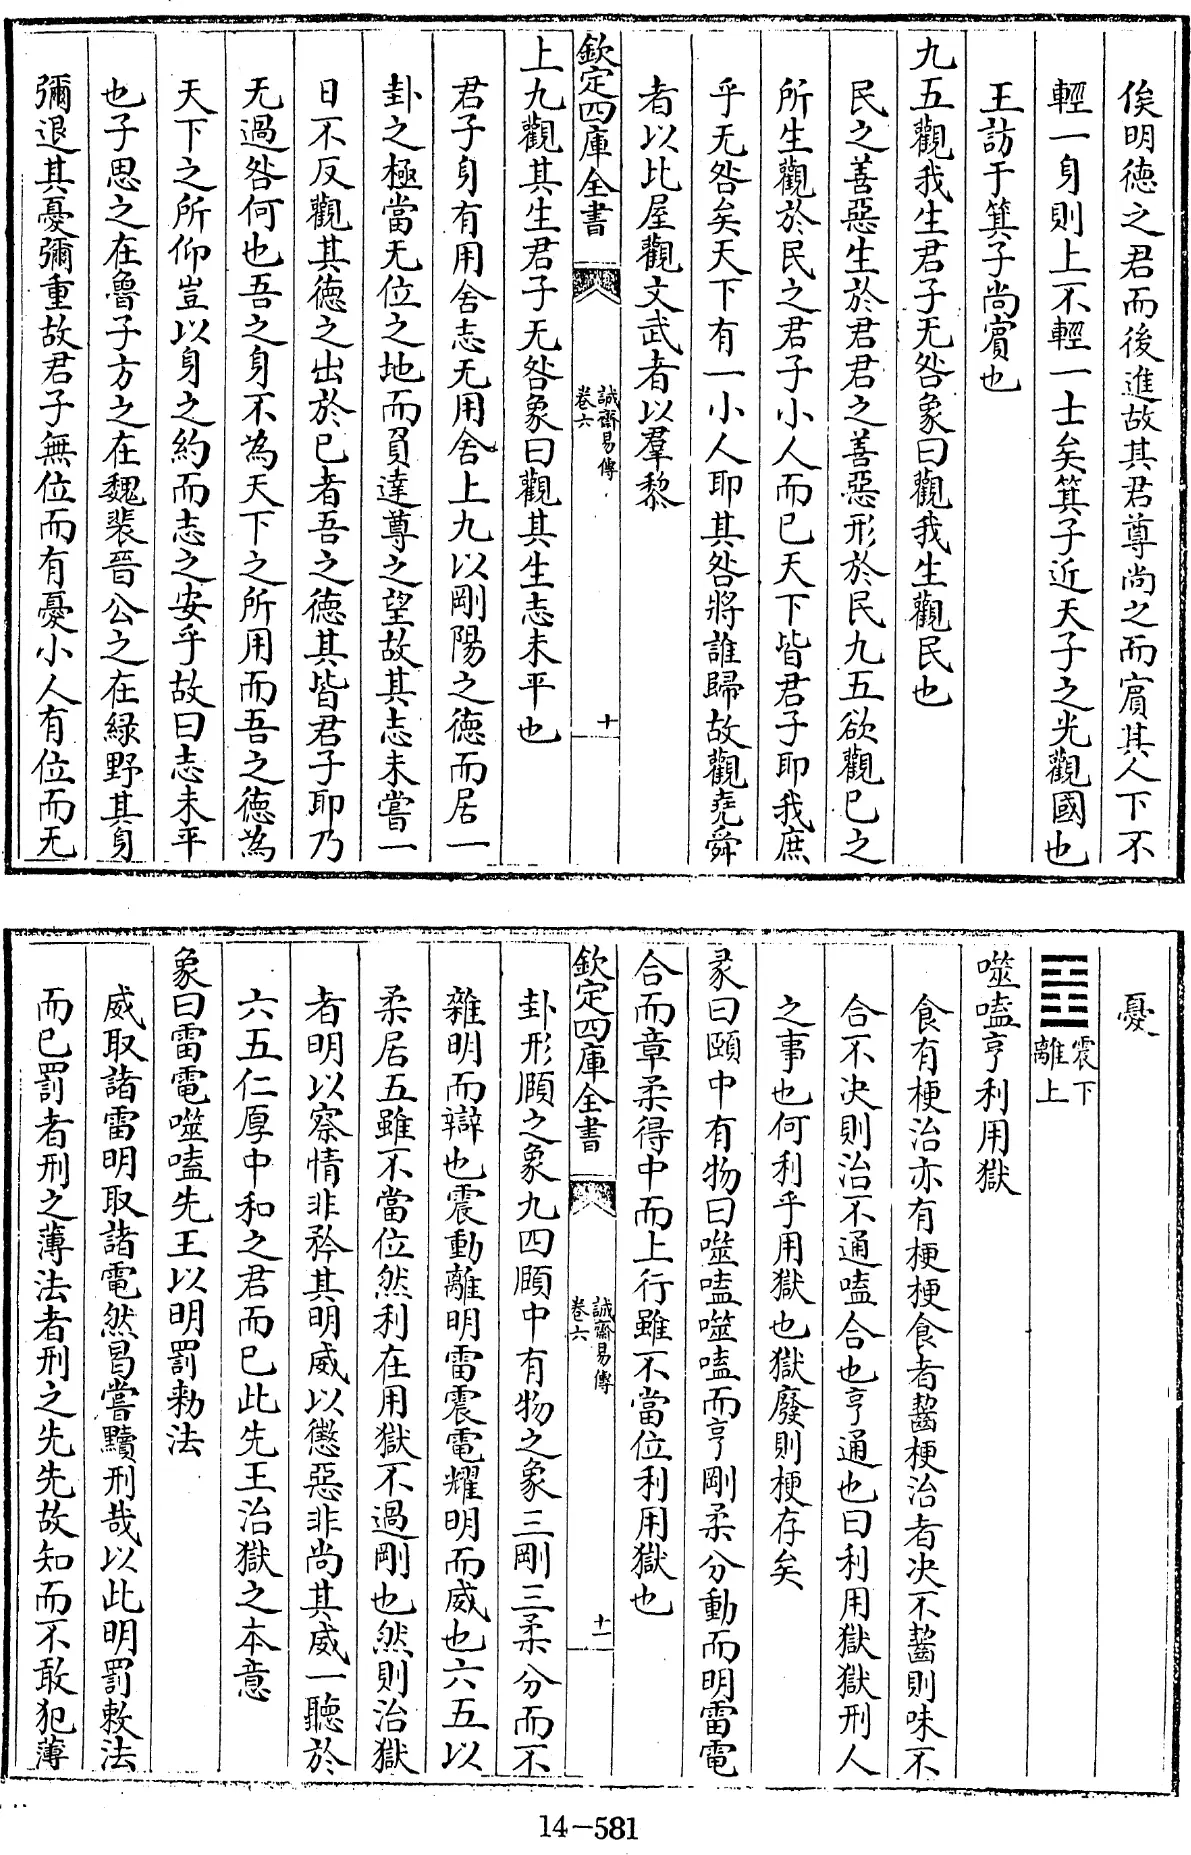 俟明德之君而後進故其君尊尚之而賔其人下不
輕一身則上不輕一士矣箕子近天子之光觀國也
王訪于箕子尚賔也
九五觀我生君子无咎象曰觀我生觀民也
民之善惡生於君君之善惡形於民九五欲觀已之
所生觀於民之君子小人而已天下皆君子耶我庶
乎无咎矣天下有一小人耶其咎將誰歸故觀堯舜
者以比屋觀文武者以羣黎
欽定四庫全書
誠齋易傳
卷六
十
上九觀其生君子无咎象曰觀其生志未平也
君子身有用舍志无用舍上九以剛陽之德而居一
卦之極當无位之地而負達尊之望故其志未嘗一
日不反觀其德之出於已者吾之德其皆君子耶乃
无過咎何也吾之身不為天下之所用而吾之德為
天下之所仰豈以身之約而志之安乎故曰志未平
也子思之在魯子方之在魏裴晉公之在緑野其身
彌退其憂彌重故君子無位而有憂小人有位而无
憂
震下
離上
噬嗑亨利用獄
食有梗治亦有梗梗食者齧梗治者决不齧則味不
合不决則治不通嗑合也亨通也曰利用獄獄刑人
之事也何利乎用獄也獄廢則梗存矣
彖曰頤中有物曰噬嗑噬嗑而亨剛柔分動而明雷電
合而章柔得中而上行雖不當位利用獄也
欽定四庫全書
誠齋易傳
卷六
十一
卦形頤之象九四頤中有物之象三剛三柔分而不
雜明而辯也震動離明雷震電耀明而威也六五以
柔居五雖不當位然利在用獄不過剛也然則治獄
者明以察情非矜其明威以懲惡非尚其威一聽於
六五仁厚中和之君而已此先王治獄之本意
象曰雷電噬嗑先王以明罰勑法
威取諸雷明取諸電然曷嘗黷刑哉以此明罰敕法
而已罰者刑之薄法者刑之先先故知而不敢犯薄
14-581